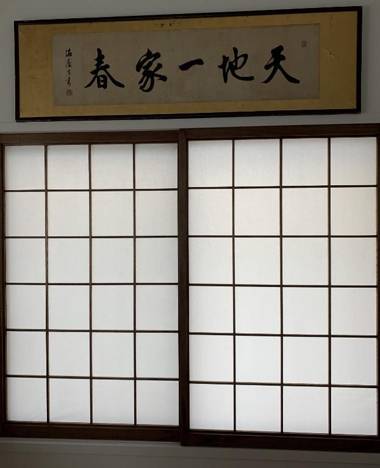 天地一家春